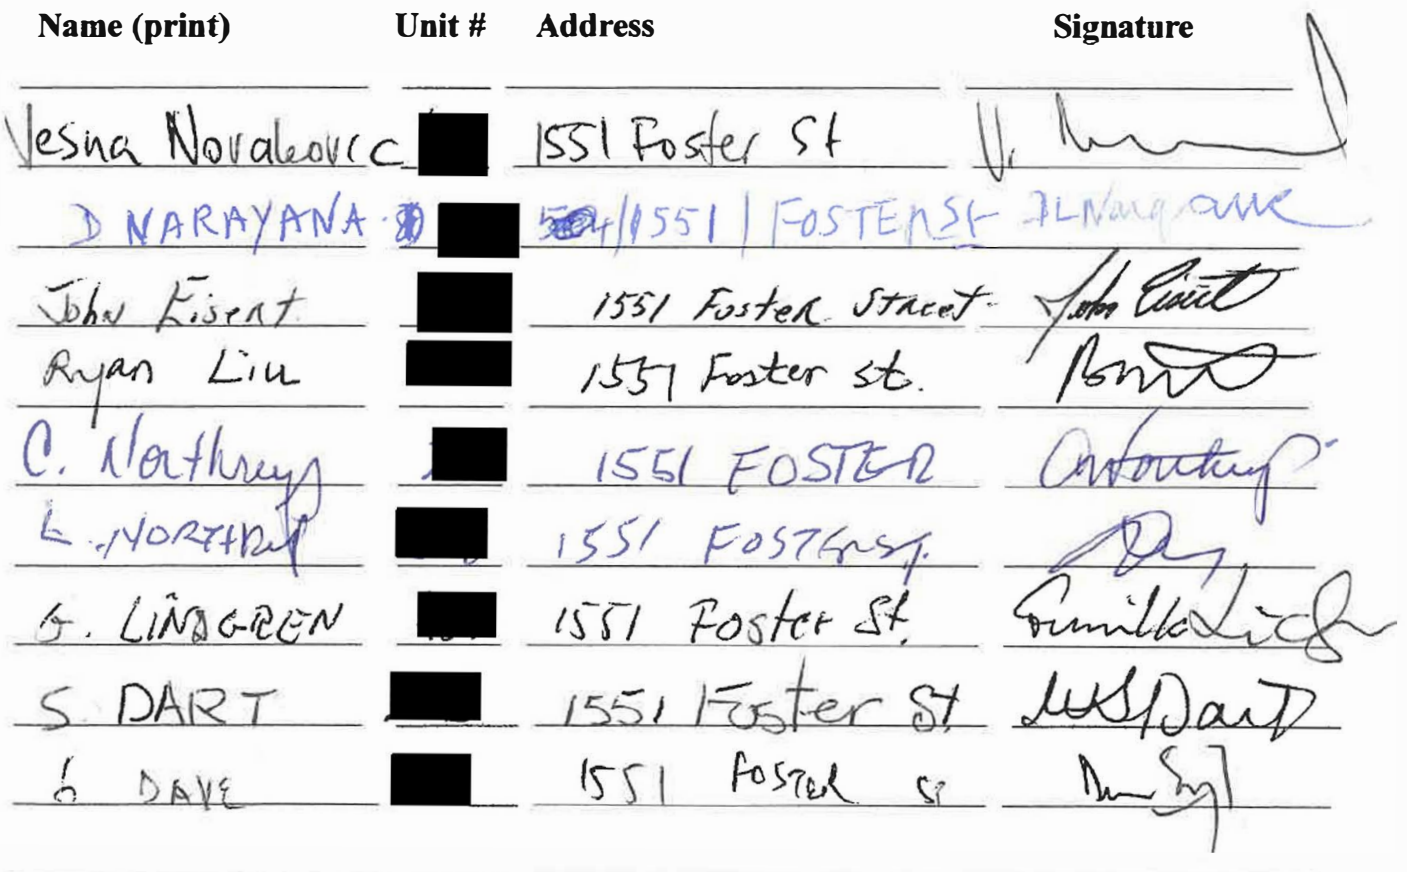 Name (print) Unit # Address Signature
Vesna Novakovic 1551 Foster St V.
D NARAYANA /1551 | FOSTER St
John Eisert 1551 Foster Street John Eisert
Ryan Liu 1551 Foster st.
C. Northrup 1551 FOSTER
L. NORTHRUP 1551 FOSTER ST.
G. LINDGREN 1551 Foster St.
S. DART 1551 Foster St Dart
DAVE 1551 FOSTER St